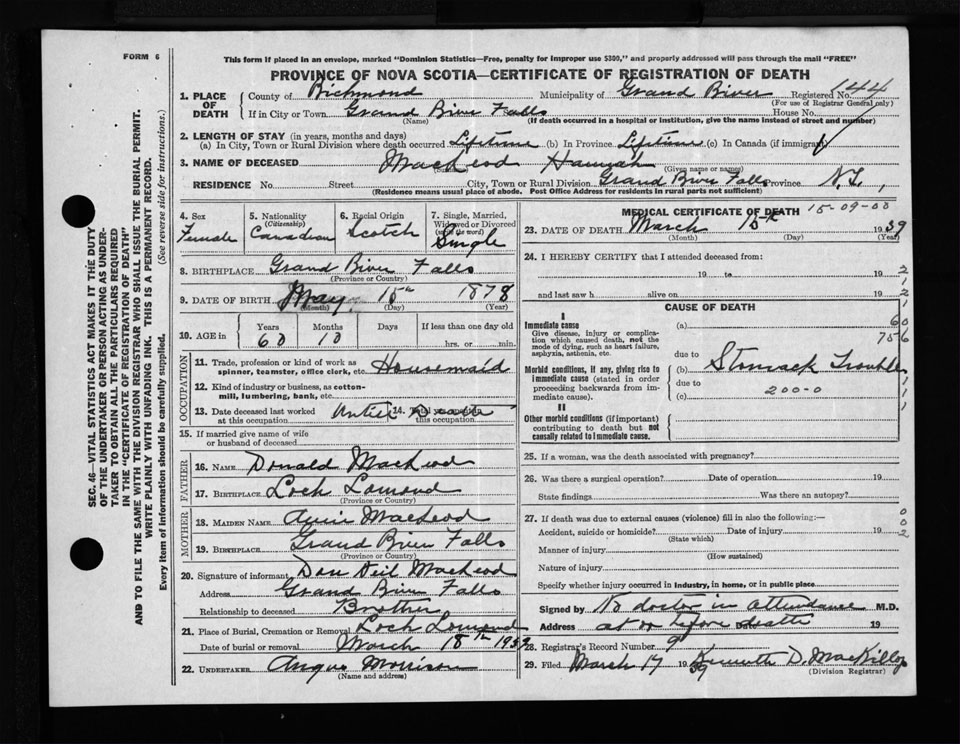 FORM 6
This form if placed in an envelope, marked "Dominion Statistics—Free, penalty for improper use $300," and properly addressed will pass through the mail "FREE"
PROVINCE OF NOVA SCOTIA—CERTIFICATE OF REGISTRATION OF DEATH
1. PLACE OF DEATH
County of Richmond Municipality of Grand River Registered No. 144
(For use of Registrar General only)
If in City or Town Grand River Falls House No.
(Name) (If death occurred in a hospital or institution, give the name instead of street and number)
2. LENGTH OF STAY (in years, months and days)
(a) In City, Town or Rural Division where death occurred Lifetime (b) In Province Lifetime (c) In Canada (if immigrant)
3. NAME OF DECEASED MacLeod Hannah
(Given name or names)
RESIDENCE No. Street City, Town or Rural Division Grand River Falls Province N.S.
(Residence means usual place of abode. Post Office Address for Residents in rural parts not sufficient)
4. Sex Female
5. Nationality (Citizenship) Canadian
6. Racial Origin Scotch
7. Single, Married, Widowed or Divorced (write the word) Single
8. BIRTHPLACE Grand River Falls
(Province or Country)
9. DATE OF BIRTH May 15th 1878
(Month) (Day) (Year)
10. AGE in Years 60 Months 10 Days If less than one day old hrs. or min.
OCCUPATION
11. Trade, profession or kind of work as spinner, teamster, office clerk, etc. Housemaid
12. Kind of industry or business, as cotton-mill, lumbering, bank, etc.
13. Date deceased last worked at this occupation
14. this occupation
15. If married give name of wife or husband of deceased
FATHER
16. NAME Donald MacLeod
17. BIRTHPLACE Loch Lomond
(Province or Country)
MOTHER
18. MAIDEN NAME Annie MacLeod
19. BIRTHPLACE Grand River Falls
(Province or Country)
20. Signature of informant Dan Neil MacLeod
Address Grand River Falls
Relationship to deceased Brother
21. Place of Burial, Cremation or Removal Loch Lomond
Date of burial or removal March 18th 1939
22. UNDERTAKER Angus Morrison
(Name and address)
MEDICAL CERTIFICATE OF DEATH 15-09-00
23. DATE OF DEATH March 15th 1939
(Month) (Day) (Year)
24. I HEREBY CERTIFY that I attended deceased from:
19 to 19 2
and last saw h alive on 19 2
CAUSE OF DEATH
I
Immediate cause (a) 60
Give disease, injury or complication which caused death, not the mode of dying, such as heart failure, asphyxia, asthenia, etc.
due to
Morbid conditions, if any, giving rise to immediate cause (stated in order proceeding backwards from immediate cause).
(b) Stomack Trouble
due to
(c) 200-0
II
Other morbid conditions (if important) contributing to death but not causally related to immediate cause.
25. If a woman, was the death associated with pregnancy?
26. Was there a surgical operation? Date of operation 19
State findings Was there an autopsy?
27. If death was due to external causes (violence) fill in also the following:—
Accident, suicide or homicide? Date of injury 19
(State which)
Manner of injury
(How sustained)
Nature of injury
Specify whether injury occurred in industry, in home, or in public place
Signed by No doctor in attendance M.D.
Address at or before death Date 19
28. Registrar's Record Number 9
29. Filed March 17 1939 Kenneth D. MacKillop
(Division Registrar)
SEC. 46—VITAL STATISTICS ACT MAKES IT THE DUTY
OF THE UNDERTAKER OR PERSON ACTING AS UNDER-
TAKER TO OBTAIN ALL THE PARTICULARS REQUIRED
IN THE "CERTIFICATE OF REGISTRATION OF DEATH"
AND TO FILE THE SAME WITH THE DIVISION REGISTRAR WHO SHALL ISSUE THE BURIAL PERMIT.
WRITE PLAINLY WITH UNFADING INK. THIS IS A PERMANENT RECORD.
Every item of information should be carefully supplied. (See reverse side for instructions.)